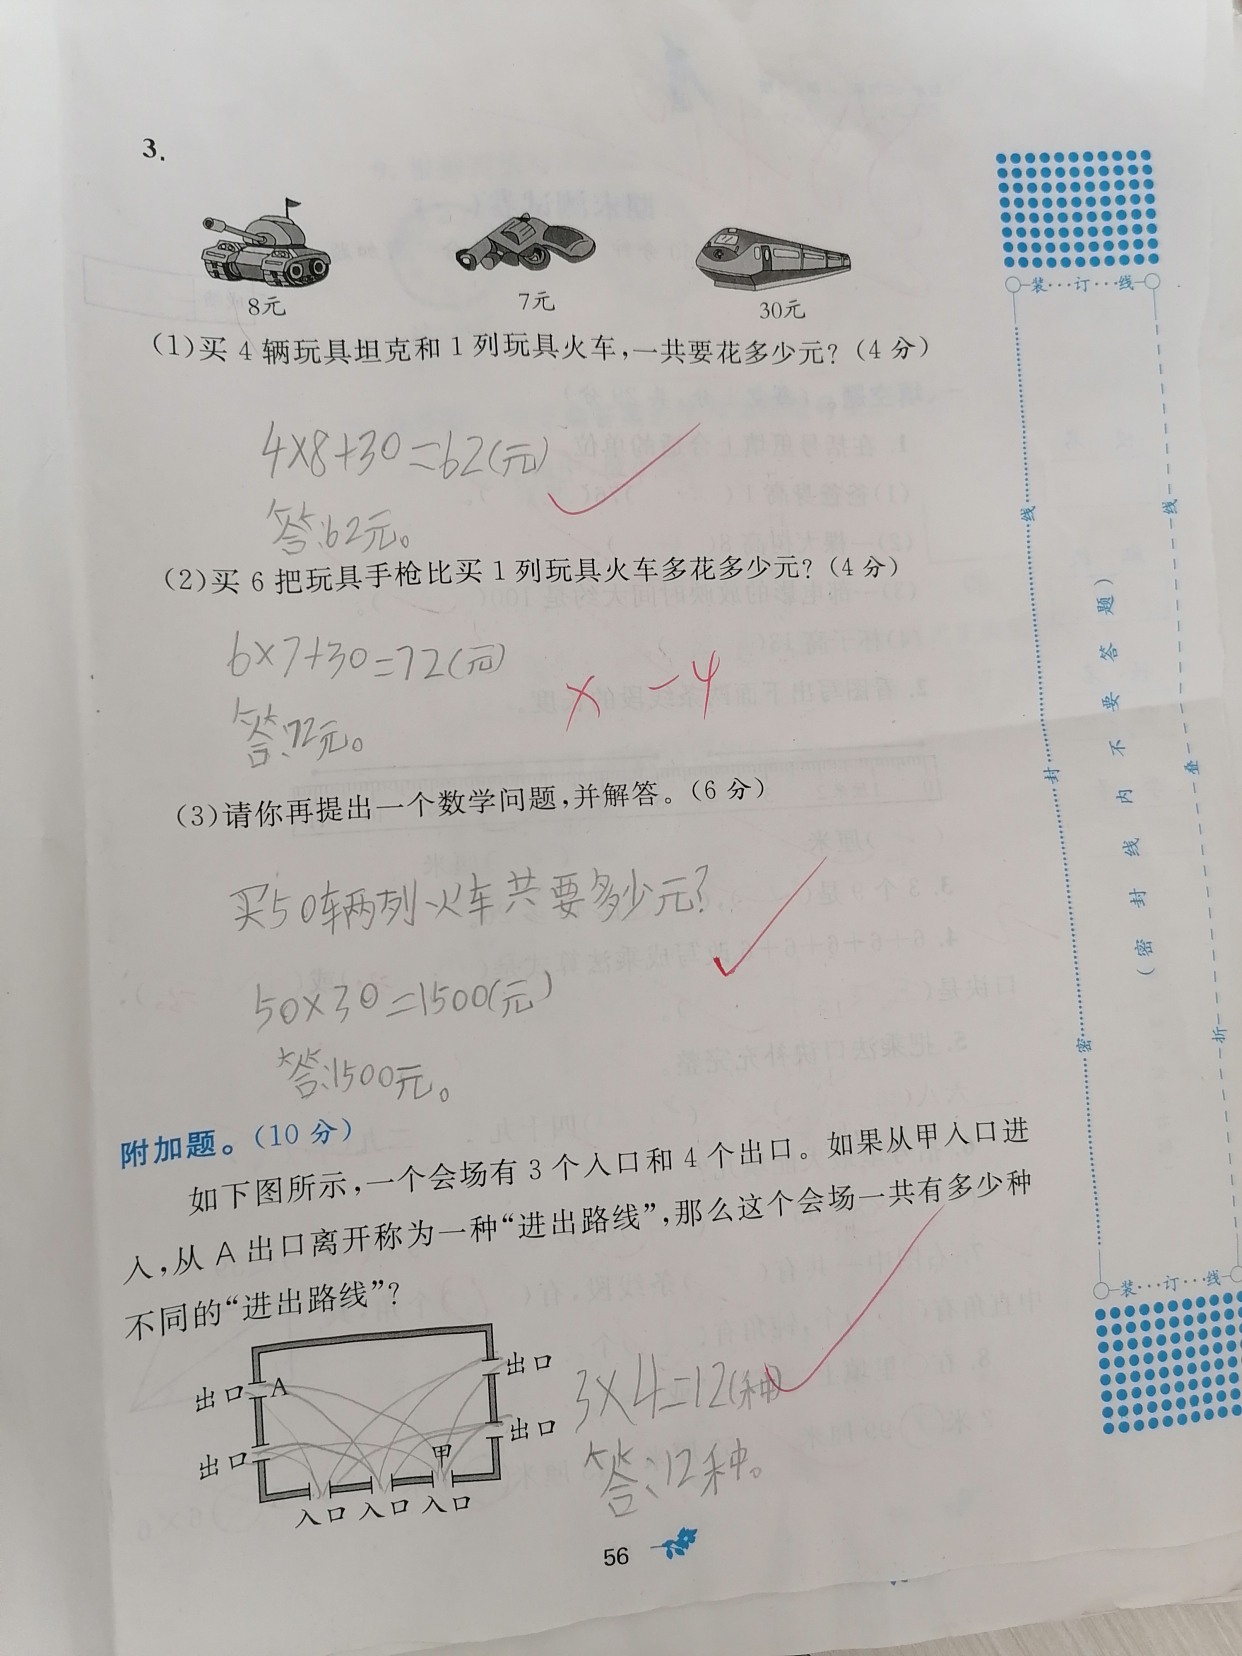 3.
8元
7元
30元
(1)买 4 辆玩具坦克和 1 列玩具火车,一共要花多少元? (4 分)
4×8+30=62(元)
答:62元。
(2)买 6 把玩具手枪比买 1 列玩具火车多花多少元? (4 分)
6×7+30=72(元)
× -4
答:72元。
(3)请你再提出一个数学问题,并解答。(6 分)
买50车辆列火车共要多少元?
50×30=1500(元)
答:1500元。
附加题。(10 分)
如下图所示,一个会场有 3 个入口和 4 个出口。如果从甲入口进
入,从 A 出口离开称为一种“进出路线”,那么这个会场一共有多少种
不同的“进出路线”?
出口 A
出口
出口
出口
甲
入口 入口 入口
3×4=12(种)
答:12种。
56
装···订···线
线
封
密
(密 封 线 内 不 要 答 题)
线
叠
折
装···订···线